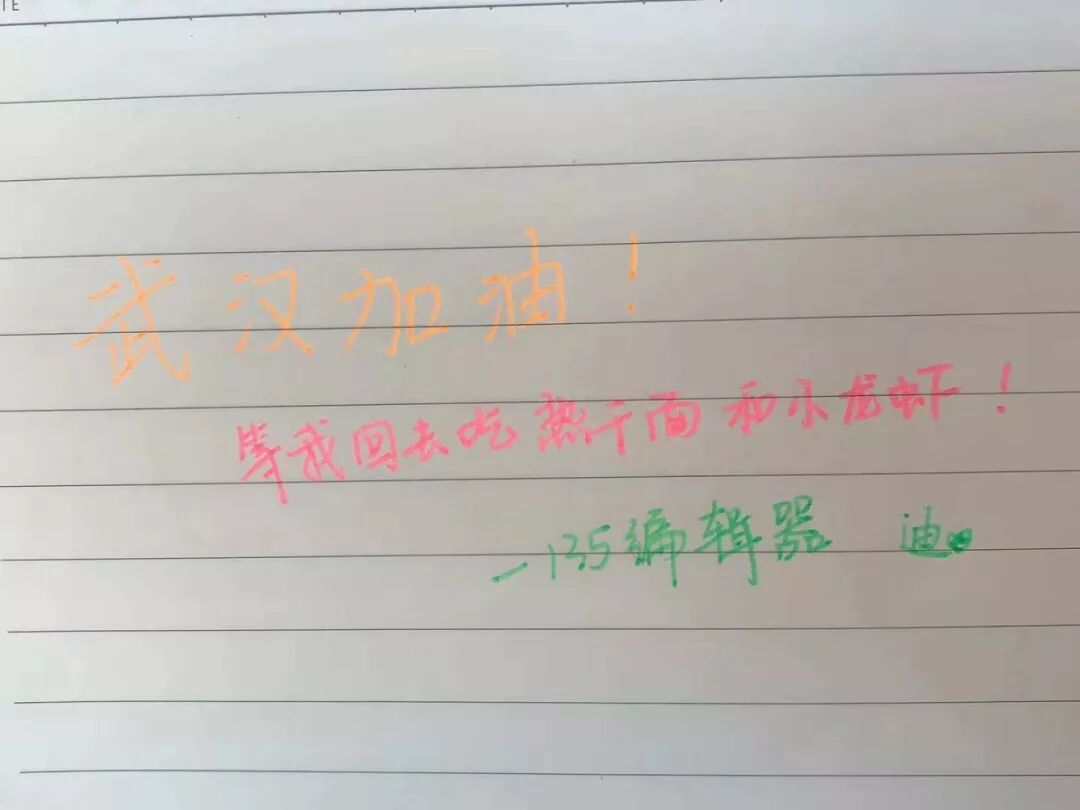 TE
武汉加油！
等我回去吃热干面和小龙虾！
—135编辑器 迪